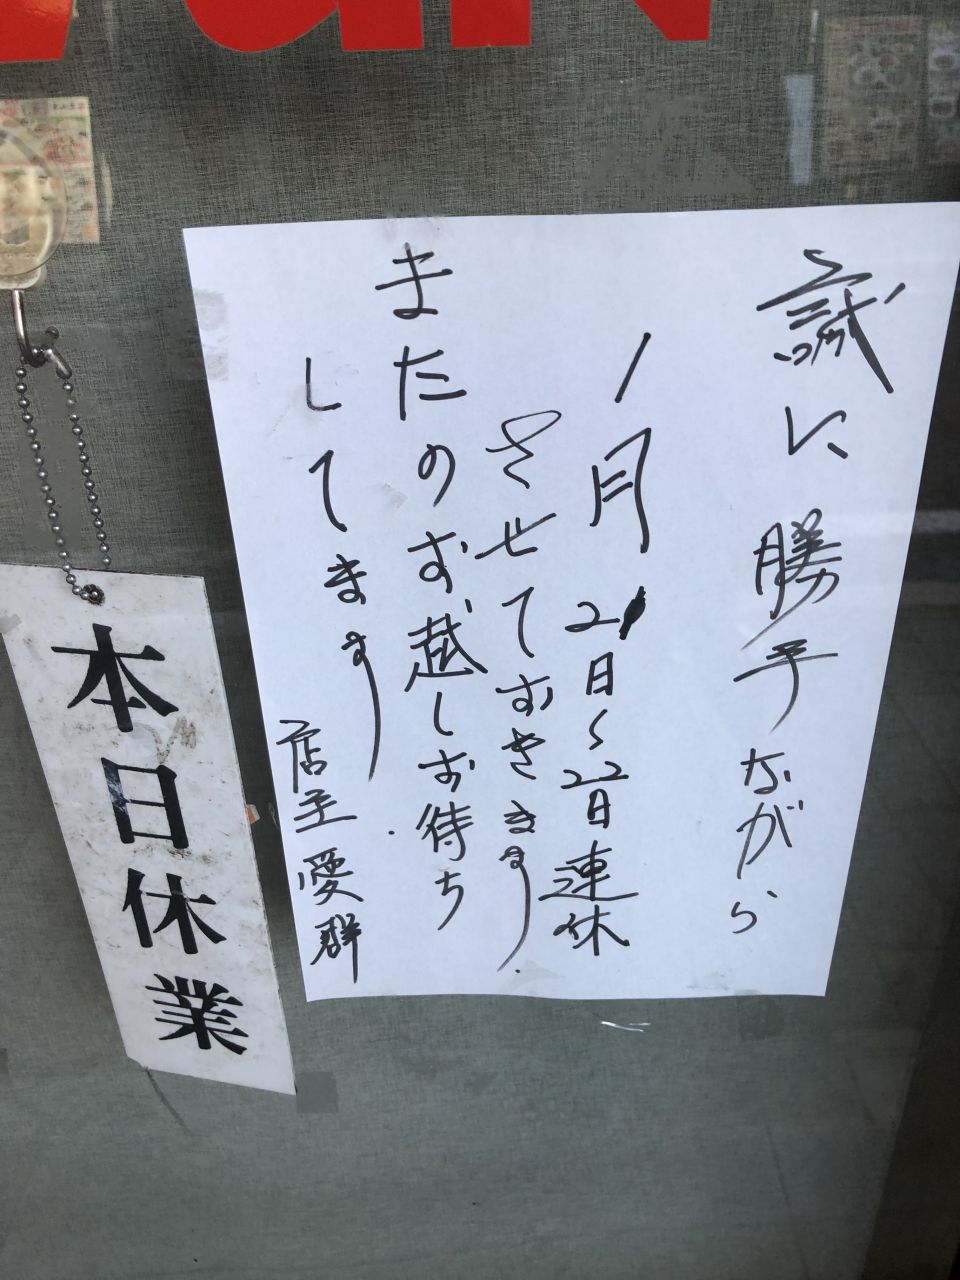 誠に勝手ながら
1月21日~22日連休
させてすきます.
またのす越しお待ち
してます
店主愛群
本日休業